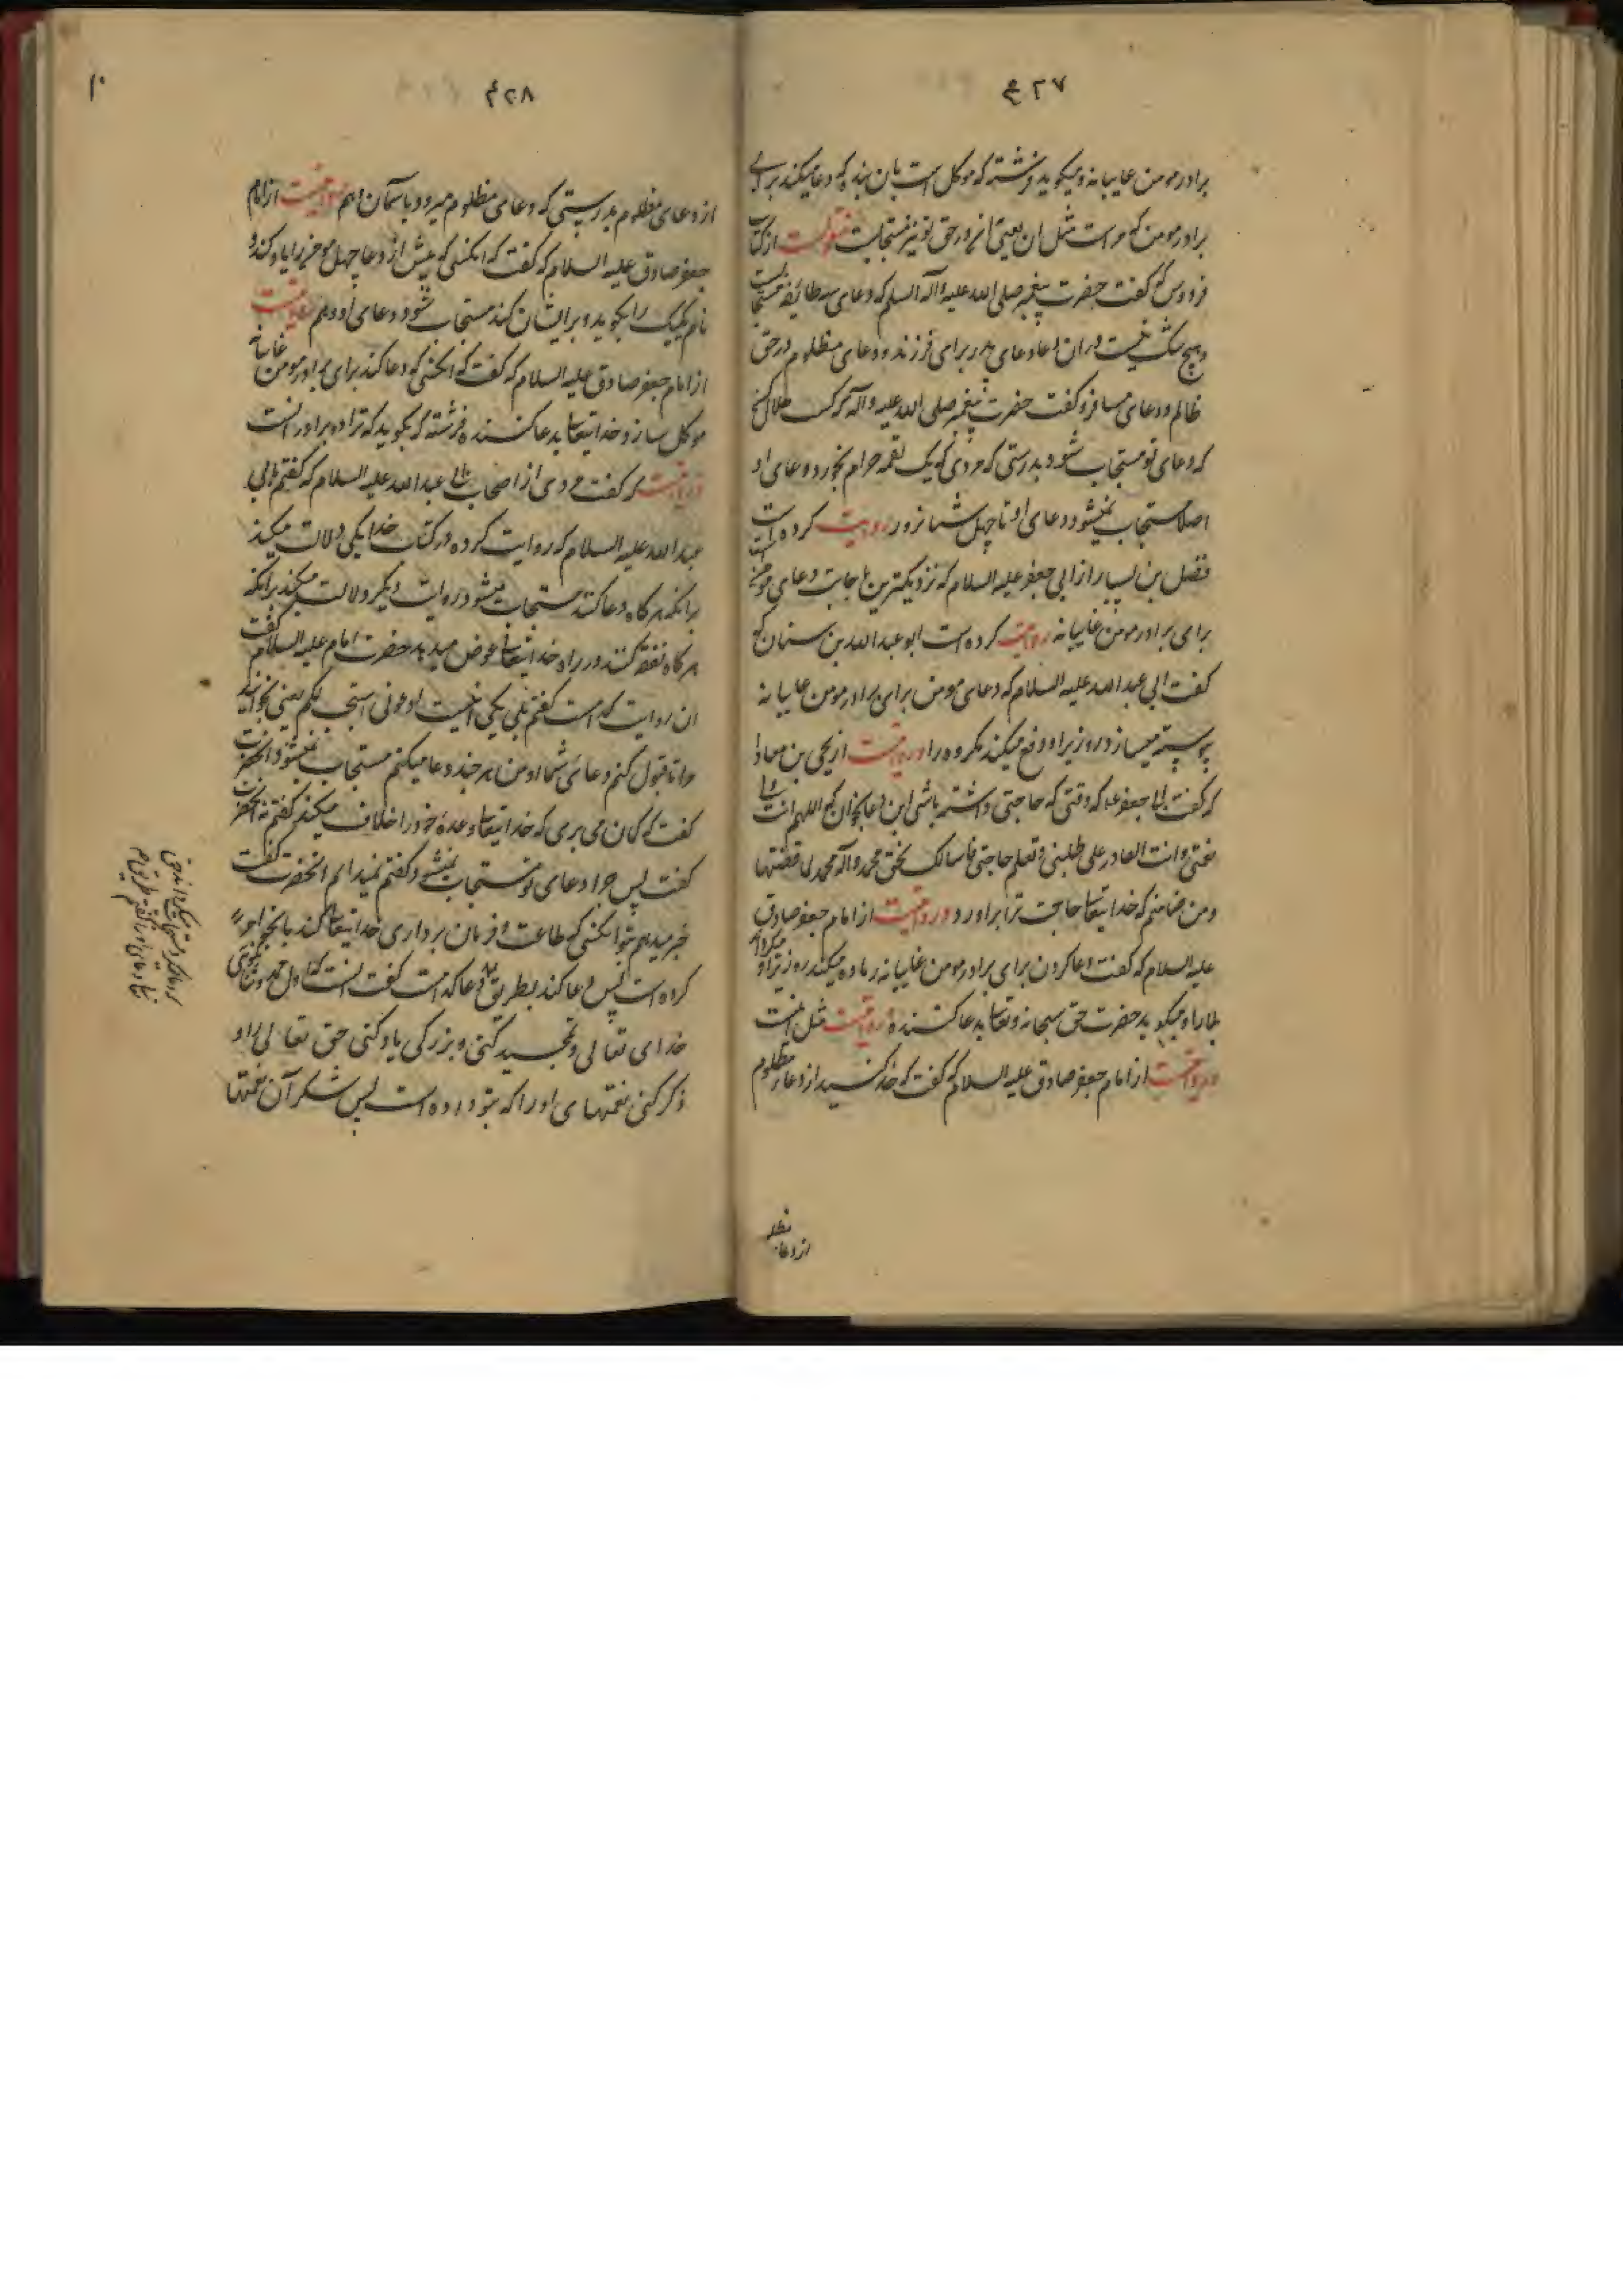 ۴۲۷
برادر مومن غایبانه و میکوید فرشته که موکل است بان بنده که دعا میکند برای
برادر مومن که مر است مثل ان یعنی انچه در حق تو نیز مستجابست منقولست از کتاب
فردوس که کفت حضرت پیغمبر صلی الله علیه وآله السلم که دعای سه طائفه مستجابست
و هیچ شک نیست دران دعا دعای پدر برای فرزند و دعای مظلوم در حق
ظالم و دعای مسافر و کفت حضرت پیغمبر صلی الله علیه وآله که کسب حلال کن
که دعای تو مستجاب شود بدرستی که مردی که یک لقمه حرام بخورد دعای او
اصلا مستجاب نمیشود دعای او تا چهل شبانروز روایت کرده است
فضل بن یسار از ابی جعفر علیه السلام که نزدیکترین باجابت دعای مومن است
برای برادر مومن غایبانه روایت کرده است ابو عبدالله بن سنان که
کفت ابی عبدالله علیه السلام که دعای مومن برای برادر مومن غایبانه
پیوسته میسازد روزیرا و دفع میکند مکروه را و روایتست از یحیی بن معاذ
که کفت ابا جعفر که وقتی که حاجتی داشته باشی این دعا بخوان که اللهم انت ولی
نعمتی وانت القادر علی طلبتی وتعلم حاجتی فاسالک بحق محمد وآله محمد لما قضیتها
و من ضامنم که خدایتعالی حاجت ترا براورد و روایتست از امام جعفر صادق
علیه السلام که کفت دعا کردن برای برادر مومن غایبانه زیاده میکند روزیرا و میکرداند
بلا را و میکوید حضرت حق سبحانه وتعالی بدعا کننده روایتست مثل انست
و روایتست از امام جعفر صادق علیه السلام که کفت که حذر کنید از دعای مظلوم
از دعای مظلو
۴۲۸
۱۰
از دعای مظلوم بدرستی که دعای مظلوم میرود باسمان و هم روایتست از امام
جعفر صادق علیه السلام که کفت که انکسی که پیش از دعا چهل مومن را یاد کند و
نام یکیک را بکوید و برایشان کند مستجاب شود دعای او و هم روایتست
از امام جعفر صادق علیه السلام که کفت که انکسی که دعا کند برای برادر مومن غایبانه
موکل سازد خدایتعالی بدعا کننده فرشته که بکوید که ترا دو برابر انست
روایتست که کفت مردی از اصحاب ابی عبدالله علیه السلام که کفتم بابی
عبدالله علیه السلام که روایت کرده در کتاب خدا یکی دلالت میکند
برانکه هرکاه دعا کنند مستجاب میشود و روایت دیکر دلالت میکند برانکه
هرکاه نفقه کنند در راه خدایتعالی عوض میدهد حضرت امام علیه السلام کفت
ان روایت کدام است کفتم بلی یکی انیست ادعونی استجب لکم یعنی بخوانید
مرا تا قبول کنم دعای شما را و من هر چند دعا میکنم مستجاب نمیشود انحضرت
کفت که کمان می بری که خدایتعالی وعده خود را خلاف میکند کفتم نه انحضرت
کفت پس چرا دعای تو مستجاب نمیشود کفتم نمیدانم انحضرت کفت
خبر میدهم ترا انکسی که طاعت و فرمان برداری خدایتعالی کند بانچه امر
کرده است پس دعا کند بطریق دعا کدام است کفت انست که اول حمد و ثنا بکوئی
خدای تعالی و تمجید کنی و بزرکی یاد کنی حق تعالی را و
ذکر کنی نعمتهای او را که بتو داده است پس شکر آن نعمتها